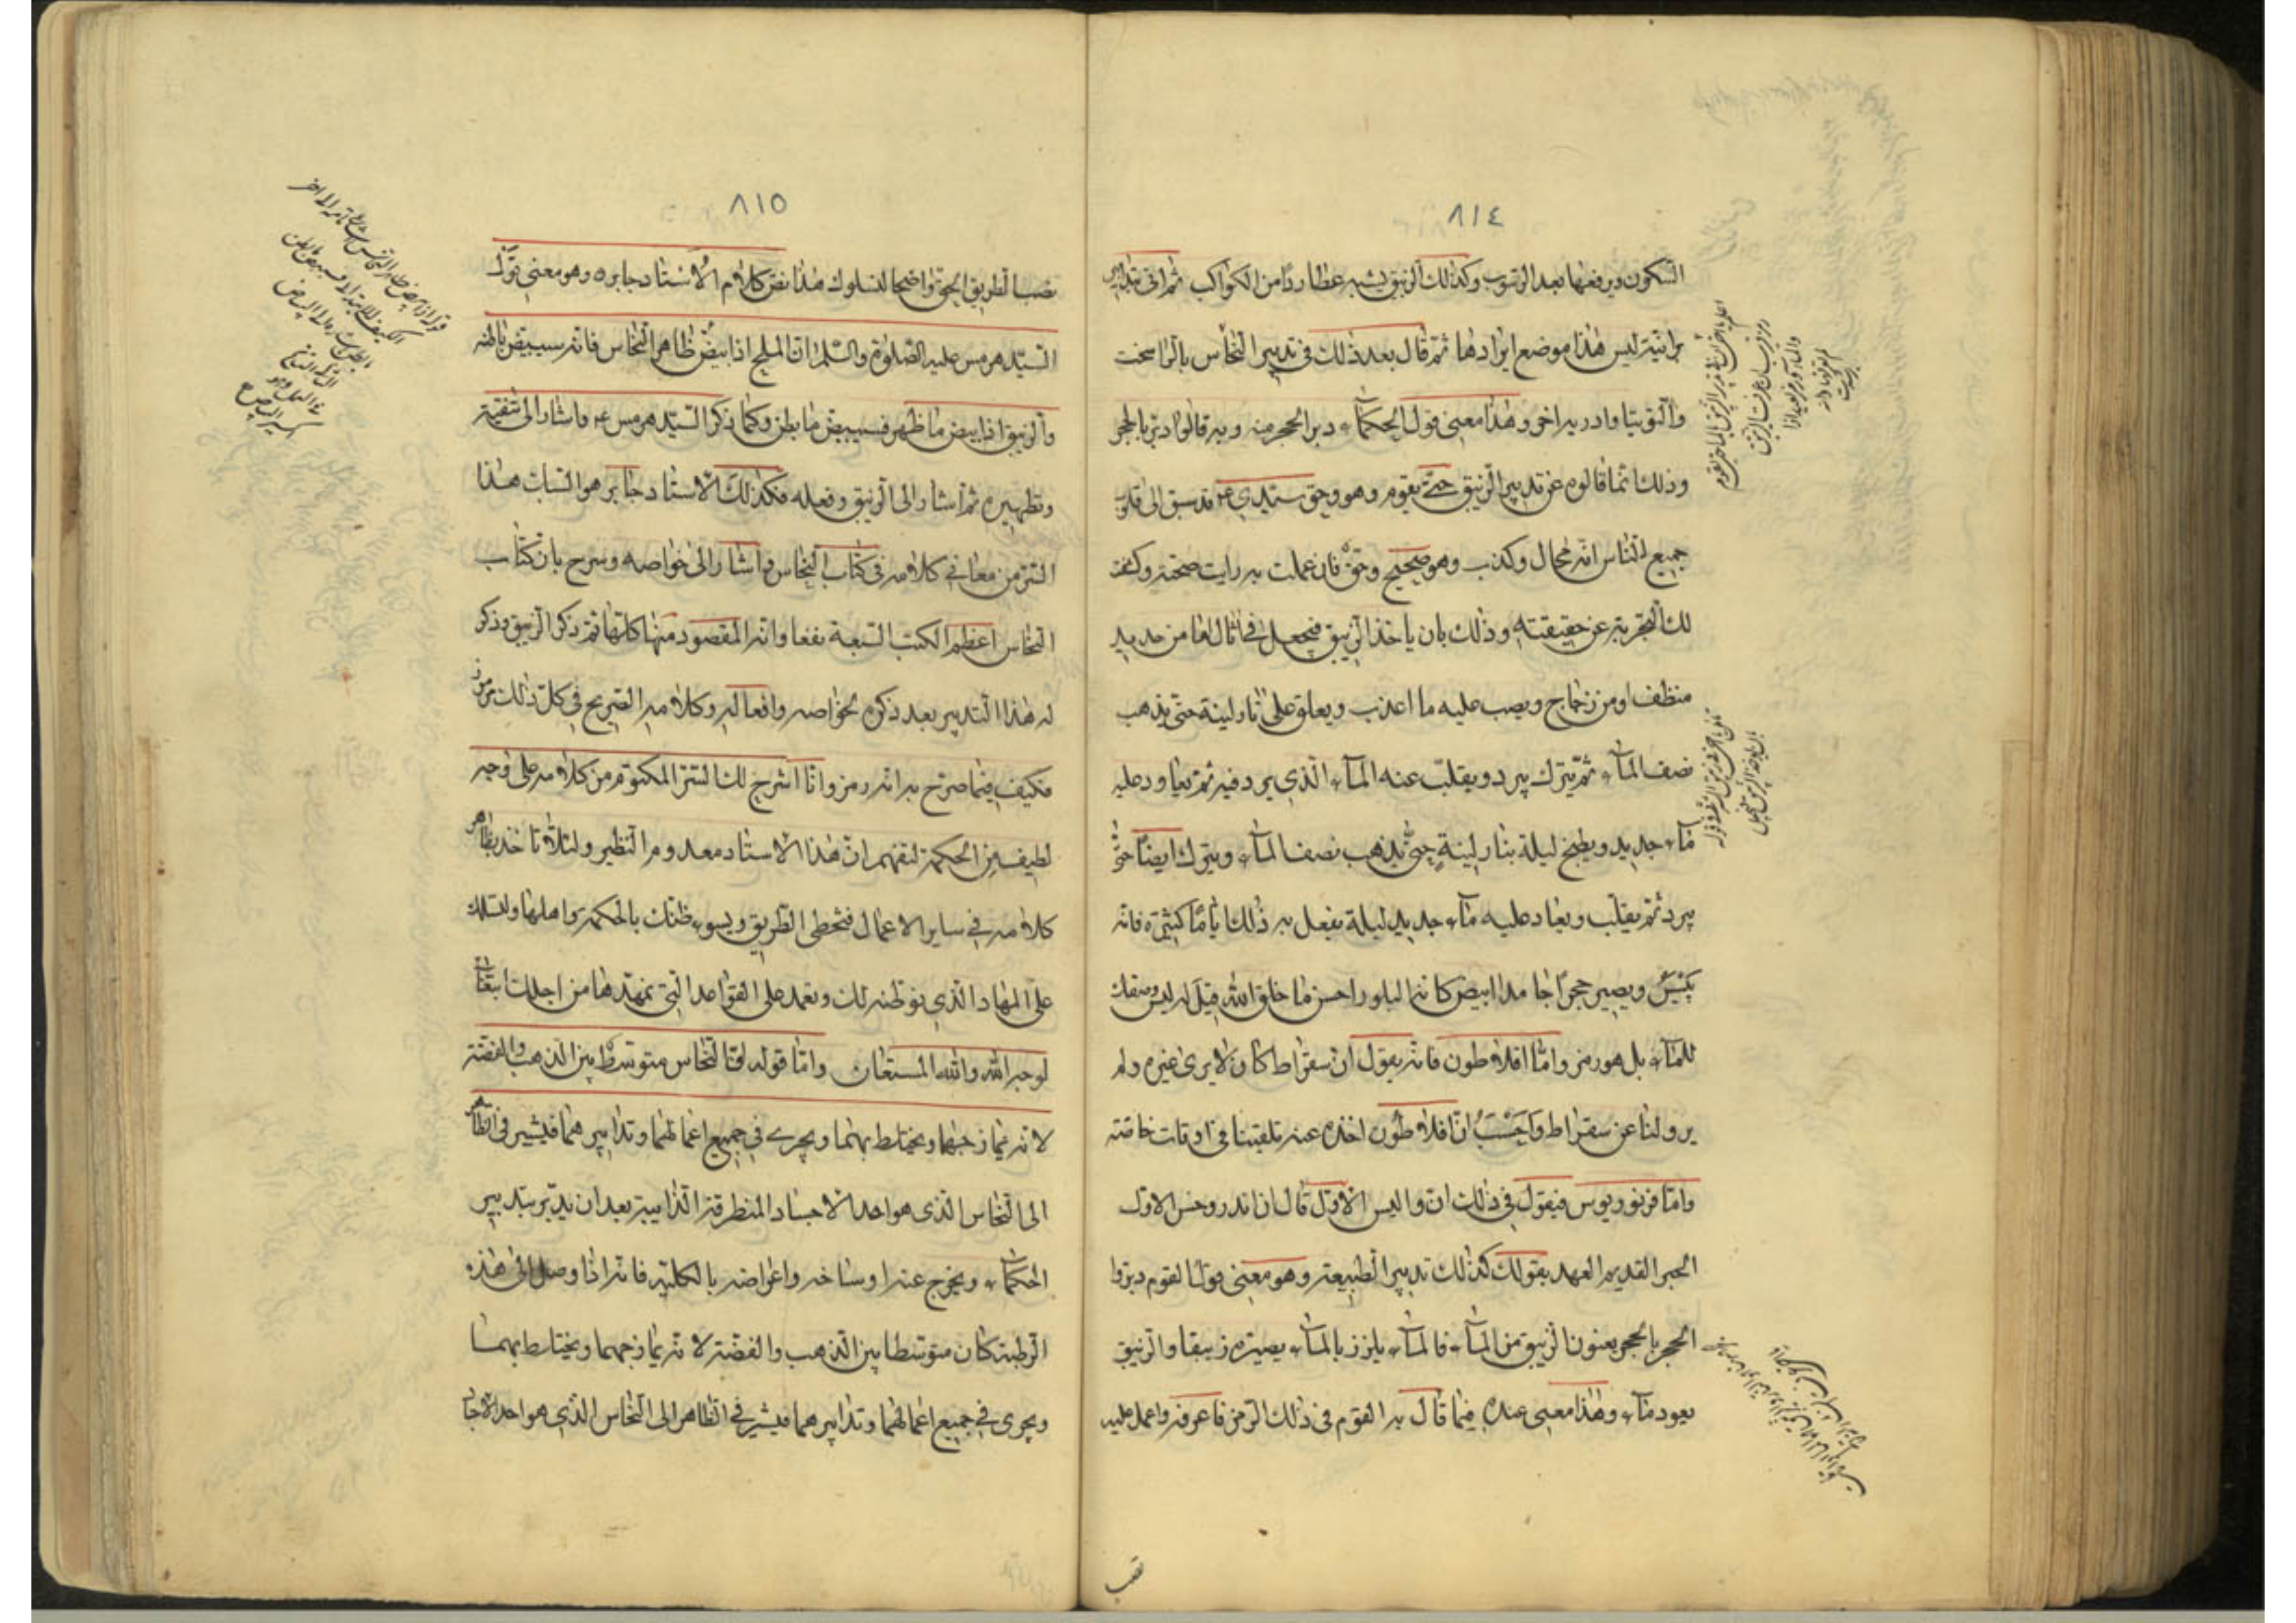 ٨١٤
السكون ويرفعها بعد الرسوب وكذلك الزيبق يشبه عطارد من الكواكب ثم اتى بتدابير
برانية ليس هذا موضع ايرادها ثمّ قال بعد ذلك فى تدبير النحاس بالراسخت
والتوتيا وادربه اخى وهذا معنى قول الحكماء دبر الحجر منه وبه قالوا دبر بالحجر
وذلك ثما قالوه عن تدبير الزيبق حتى يقوم وهو وحق سيدي قد سبق الى قلوب
جميع الناس انه محال وكذب وهو صحيح وحق فان عملت به رايت صحته وكشفت
لك التجربة عن حقيقته وذلك بان ياخذ الزيبق فيجعل في اثال اما من حديد
منظف او من زجاج ويصب عليه ما اعذب ويعلق على نار لينة حتى يذهب
نصف الماء ثمّ يترك يبرد ويقلب عنه الماء الذي يبرد فيه ثم يعاود عليه
ماء جديد ويطبخ ليلة بنار لينة حتى يذهب نصف الماء ويترك ايضا حتى
يبرد ثمّ يقلب ويعاد عليه ماء جديد ليلة يفعل به ذلك ايامًا كثيرة فانه
يَيْبَسُ ويصير حجرًا جامدا ابيض كانه البلور احسن ما خلق الله قيل له ليس وصفك
للماء بل هو رمز واما افلاطون فانه يقول ان سقراط كان لا يرى غيره ولم
يرو لنا عن سقراط وَاَحْسَبُ انّ افلاطون اخذه عنه تلقينا فى اوقات خاصّة
واما فرفوريوس فيقول في ذلك ان واليس الاول قال ان اندروخس الاول
الحبر القديم العهد يقول كذلك تدبير الطبيعة وهو معنى قول القوم دبروا
الحجر بالحجر يعنون الزيبق من الماء فالماء يلزز بالماء يصيره زيبقا والزيبق
يعود ماء وهذا معنى عنده فيما قال به القوم فى ذلك الرمز فاعرفه واعمل عليه
٨١٥
تصب الطريق الحق واضحا لتسلوك هذا نص كلام الاستاد جابره وهو معنى قول
السيد هرمس عليه الصلوة والسّلم ان المليح اذا بيض ظاهر النحاس فانه سيبيض باطنه
والزيبق اذا بيض ما ظهر فسيبيض ما بطن وكما ذكر السيد هرمس ع واشار الى تنقيته
وتطهيره ثم اشار الى الزيبق وفعله فكذلك الاستاد جابر هو السات هذا
السّر من معانى كلامه فى كتاب النحاس واشار الى خواصه وسرح بان كتاب
النحاس اعظم الكتب السبعة نفعا وانه المقصود منها كلها ثم ذكر الزيبق وذكر
له هذا التدبير بعد ذكره لخواصه وافعاله وكلامه الصريح فى كل ذلك مرموز
فكيف فيما صرح به انه رمز وانا اشرح لك السر المكتوم من كلامه على وجه
لطيف من الحكمة لتفهم ان هذا الاستاد معدوم النظير ولئلا تاخذ بظاهر
كلامه في ساير الاعمال فتخطى الطريق ويسوء ظنك بالحكمة واهلها ولتسلك
على المهاد الذي نوطنه لك وتعمد على القواعد التي نمهدها من اجلك ابتغاء
لوجه الله والله المستعان واما قوله ان النحاس متوسّط بين الذهب والفضة
لانه يمازجهما ويختلط بهما ويجري في جميع اعمالهما وتدابيرهما فيشير فى الظاهر
الى النحاس الذى هو احد الاجساد المنطرقة الذايبة بعد ان يدبّر بتدبير
الحكماء ويخرج عنه اوساخه واعراضه بالكلية فانه اذا وصل الى هذه
الرطبة كان متوسّطا بين الذهب والفضّة لانه يمازجهما ويختلط بهما
ويجرى في جميع اعمالهما وتدابيرهما فيشير فى الظاهر الى النحاس الذى هو احد الاجساد